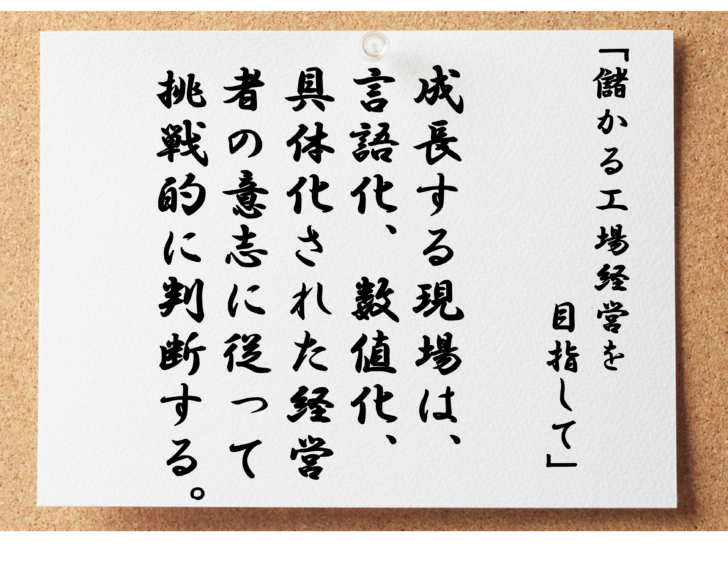 「儲かる工場経営を
目指して」
成長する現場は、
言語化、数値化、
具体化された経営
者の意志に従って
挑戦的に判断する。